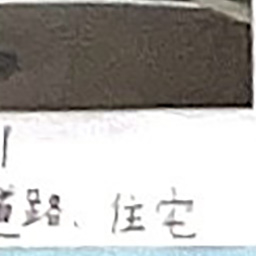 道路、住宅